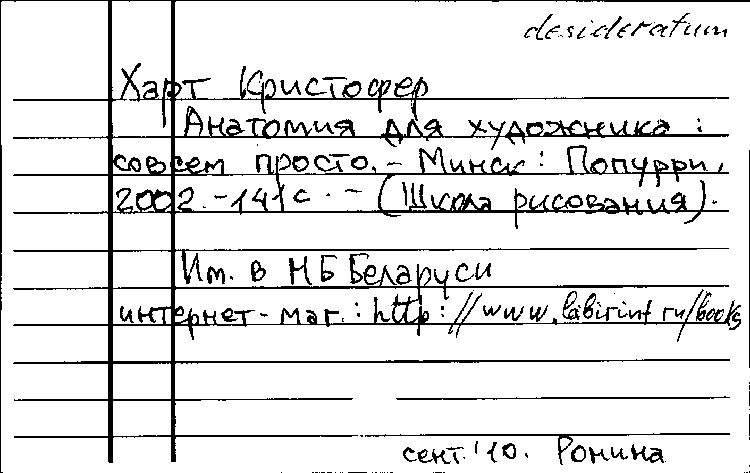 desideratum
Харт Кристофер
Анатомия для художника :
совсем просто. - Минск : Попурри,
2002. - 141 с. - (Школа рисования).
Им. в НБ Беларуси
интернет-маг. : http://www.labirint.ru/books
сент. '10. Ронина